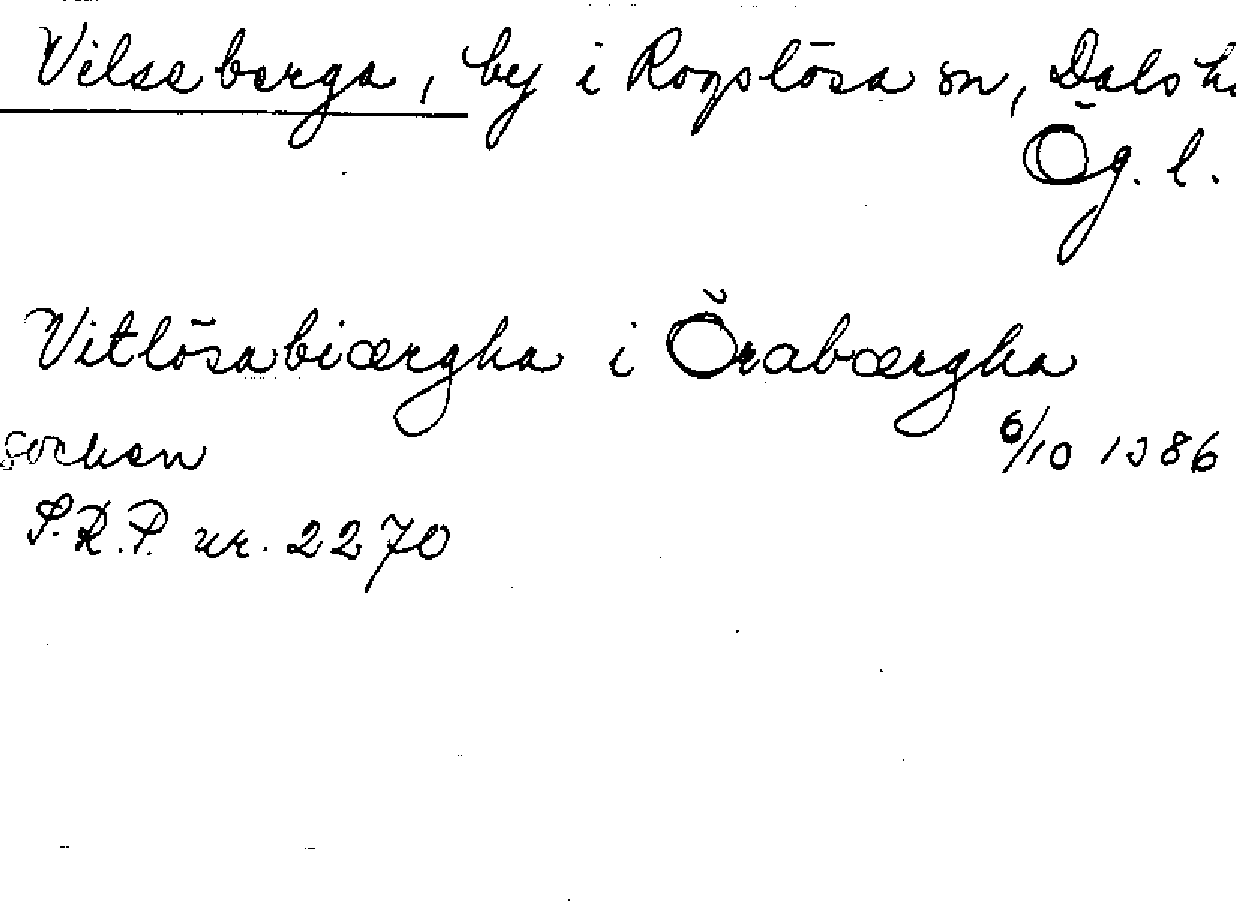 Vilseberga, by i Rogslösa sn, Dals h
Ög. l.
Vitlösabiærgha i Örabærgha
sochen 6/10 1386
S.R.P. nr. 2270